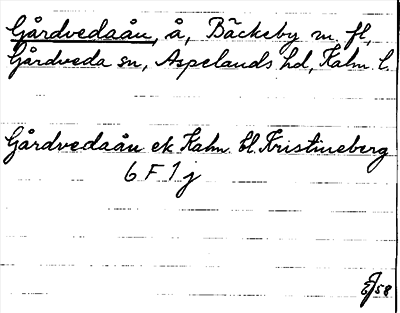 Gårdvedaån, å, Bäckeby m. fl,
Gårdveda sn, Aspelands hd, Kalm. l.
Gårdvedaån ek Kalm. bl. Kristineberg
6 F 1 j
58